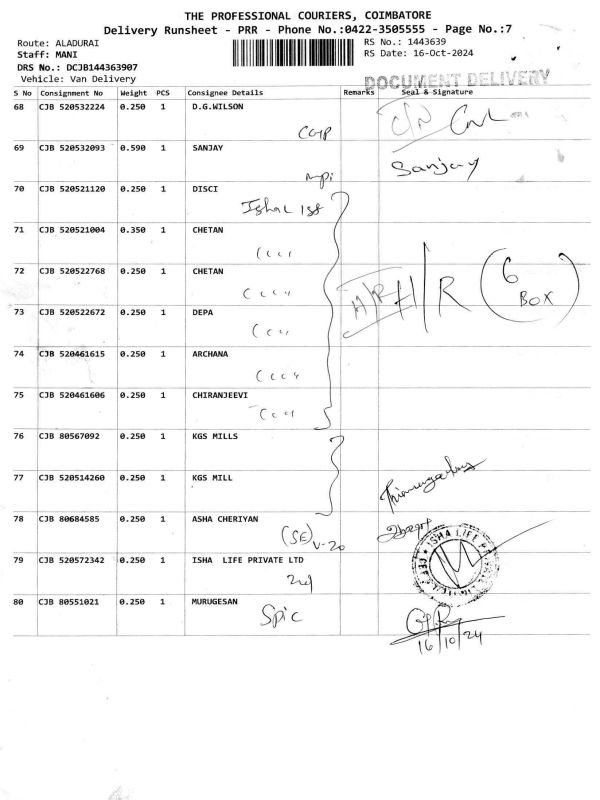 THE PROFESSIONAL COURIERS, COIMBATORE
Delivery Runsheet - PRR - Phone No.:0422-3505555 - Page No.:7
Route: ALADURAI
RS No.: 1443639
Staff: MANI
RS Date: 16-Oct-2024
DRS No.: DCJB144363907
Vehicle: Van Delivery
DOCUMENT DELIVERY
S No Consignment No Weight PCS Consignee Details Remarks Seal & Signature
68 CJB 520532224 0.250 1 D.G.WILSON
69 CJB 520532093 0.590 1 SANJAY
Sanjay
70 CJB 520521120 0.250 1 DISCI
71 CJB 520521004 0.350 1 CHETAN
72 CJB 520522768 0.250 1 CHETAN
H/R
R (6
BOX)
73 CJB 520522672 0.250 1 DEPA
74 CJB 520461615 0.250 1 ARCHANA
75 CJB 520461606 0.250 1 CHIRANJEEVI
76 CJB 80567092 0.250 1 KGS MILLS
77 CJB 520514260 0.250 1 KGS MILL
78 CJB 80684585 0.250 1 ASHA CHERIYAN
(SE) V-20
79 CJB 520572342 0.250 1 ISHA LIFE PRIVATE LTD
2nd
ISHA LIFE
80 CJB 80551021 0.250 1 MURUGESAN
Spic
16/10/24